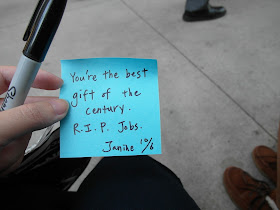 You're the best
gift of the
century.
R.I.P. Jobs.
Janine 10/6
Sharpie